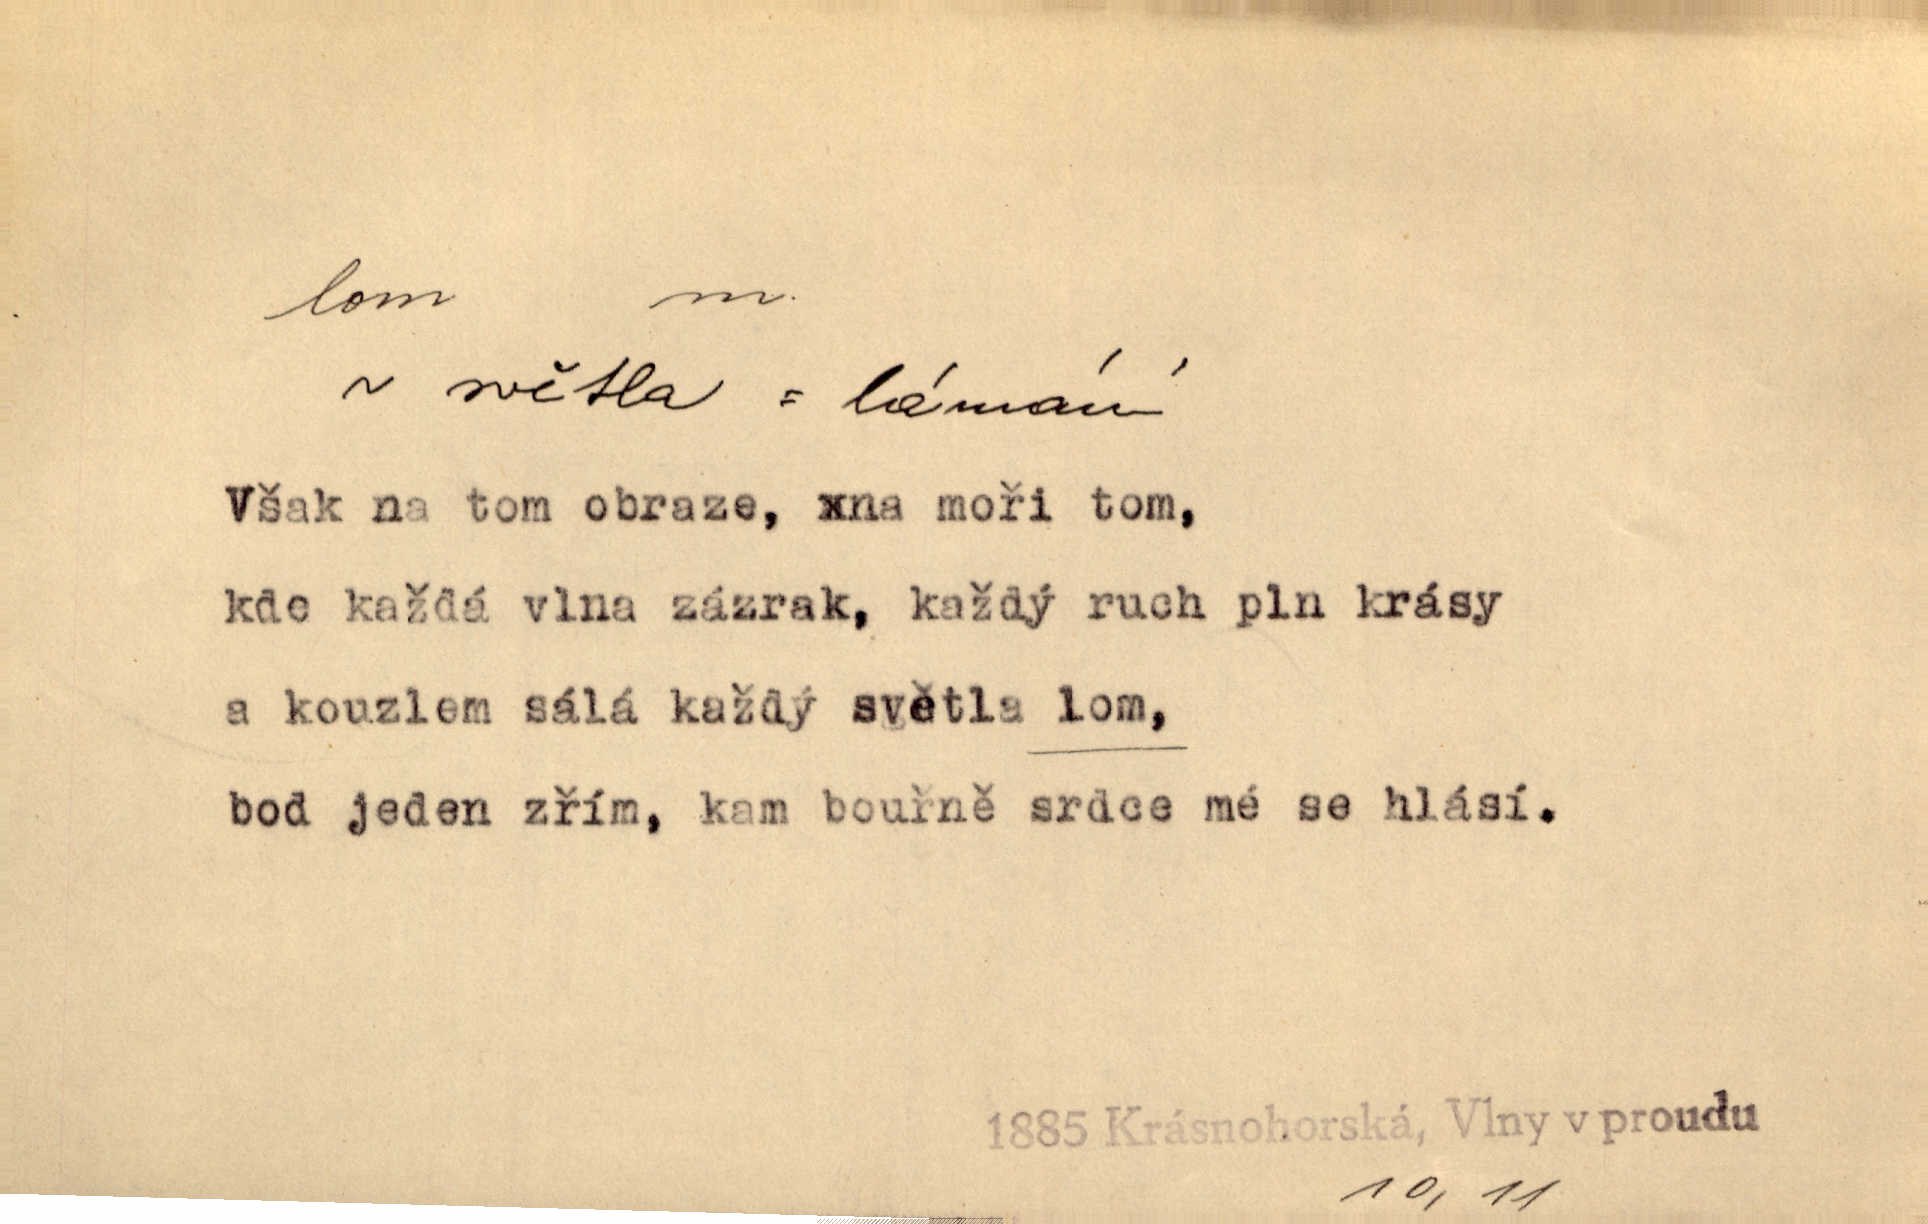 lom m.
~ světla = lámání
Však na tom obraze, xna moři tom,
kde každá vlna zázrak, každý ruch pln krásy
a kouzlem sálá každý světla lom,
bod jeden zřím, kam bouřně srdce mé se hlásí.
1885 Krásnohorská, Vlny v proudu
10, 11